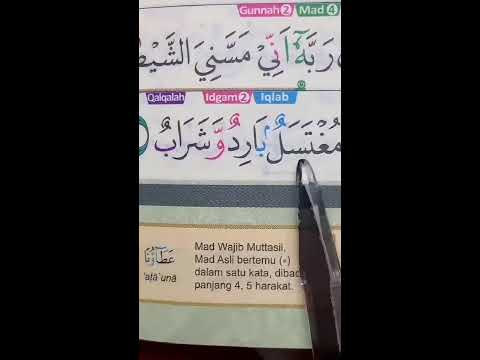 Gunnah 2 Mad 4
رَبَّهٗٓ اَنِّيْ مَسَّنِيَ
Qalqalah Idgam 2 Iqlab
مُغْتَسَلٌۢ بَارِدٌ وَّشَرَابٌ
Mad Wajib Muttasil.
Mad Asli bertemu (ء)
عَطَاۤؤُنَا dalam satu kata, dibaca
'aṭā'unā panjang 4, 5 harakat.